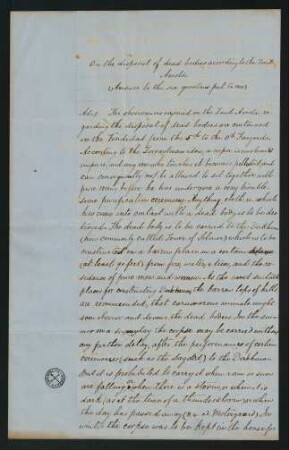 On the disposal of dead bodies according to the Zend
Avesta
Answer to the six questions put to me
Ad 1. The observances enjoined in the Zend Avesta re-
garding the disposal of dead bodies are contained
in the Vendidad from the 5th to the 9th Fargards.
According to the Zoroastrian law, a corpse is
impure, and any one who touches it becomes polluted and
can consequently not be allowed to sit together with
pure men, before he has undergone a very trouble-
some purification ceremony. Anything, cloth &c. which
has come into contact with a dead body is to be des-
troyed. The dead body is to be carried to the Dakhma
(now commonly called Tower of Silence) which is to be
constructed on a barren place in a certain distance
(at least 30 feet) from fire, water, trees, and the re-
sidence of pure men and women. As the most suitable
place for constructing Dakhmas the barren tops of hills
are recommended, that carnivorous animals might
soon discover and devour the dead bodies. In the sum-
mer on a sunny day the corpse may be carried without
any further delay, after the performance of certain
ceremonies (such as the Sagdid) to the Dakhma.
But it is prohibited to carry it when rain or snow
are falling, when there is a storm, or when it is
dark, as at the time of a thunderstorm or when
the day has passed away
winter the corpse was to be kept in the house for